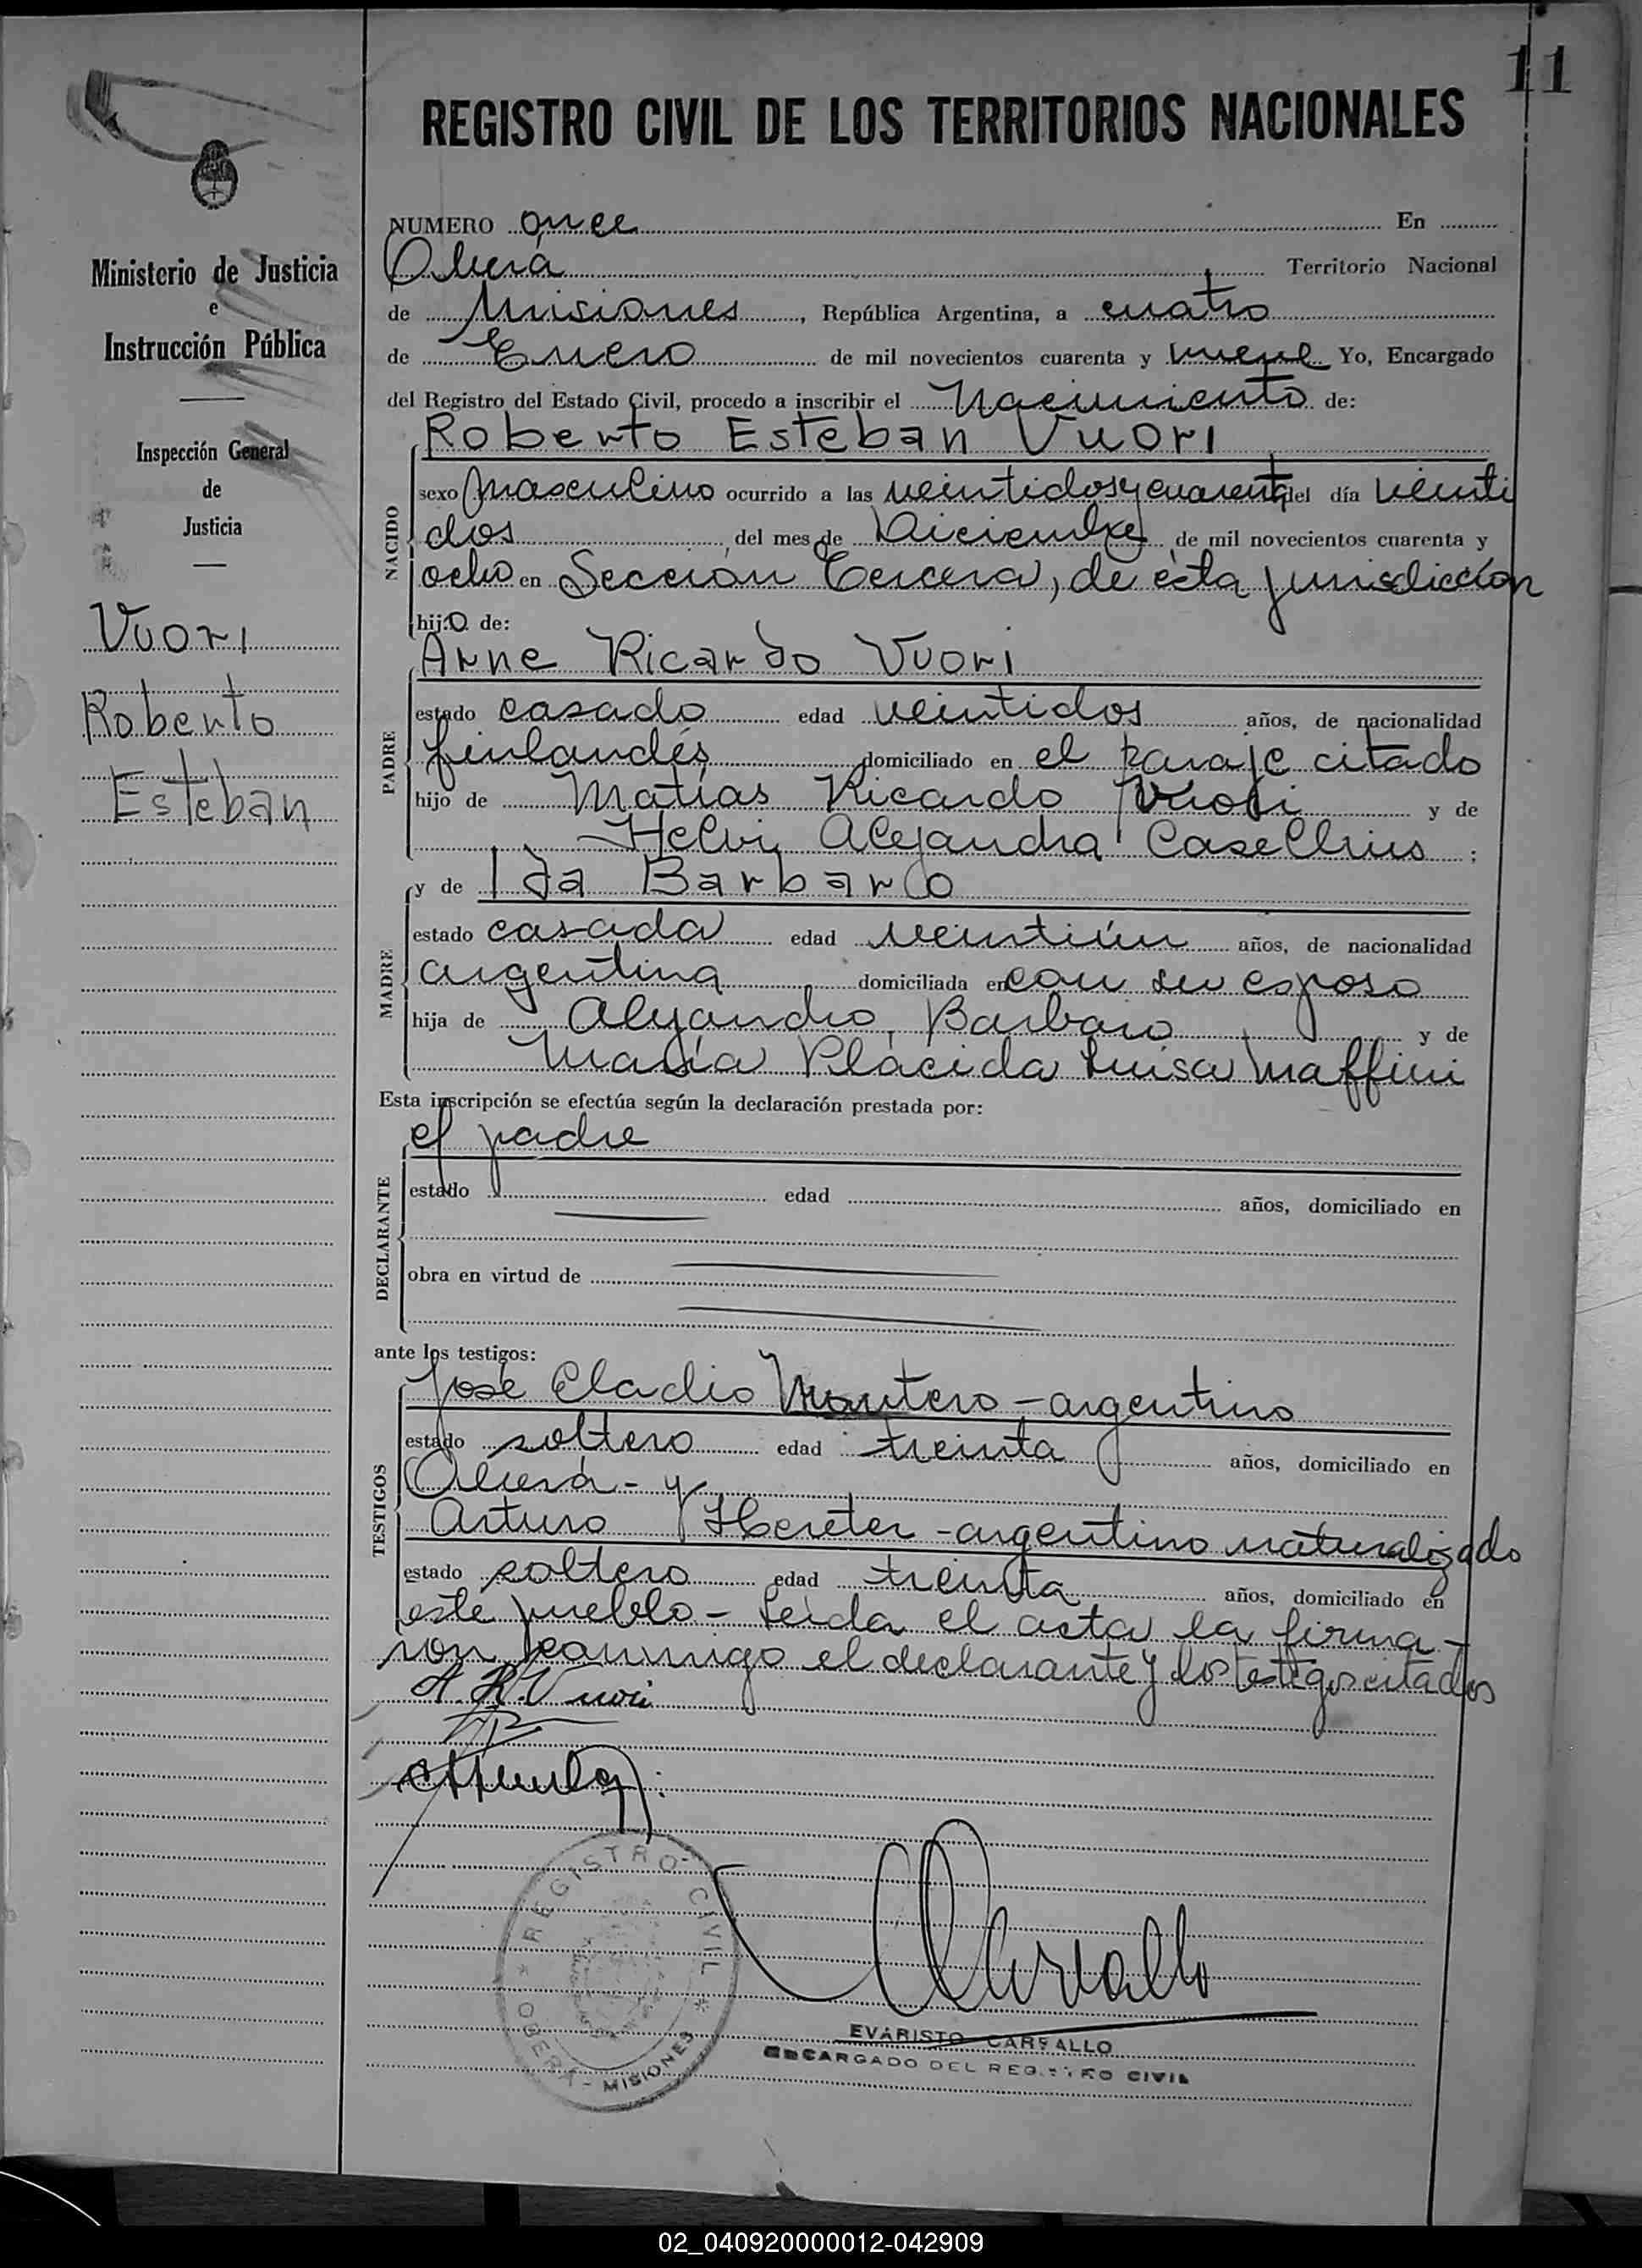 11
REGISTRO CIVIL DE LOS TERRITORIOS NACIONALES
Ministerio de Justicia
e
Instrucción Pública
Inspección General
de
Justicia
Vuori
Roberto
Esteban
NUMERO once En
Oberá Territorio Nacional
de Misiones, República Argentina, a cuatro
de Enero de mil novecientos cuarenta y nueve Yo, Encargado
del Registro del Estado Civil, procedo a inscribir el Nacimiento de:
Roberto Esteban Vuori
NACIDO
sexo masculino ocurrido a las veintidos y cuarenta del día veinti
dos, del mes de Diciembre de mil novecientos cuarenta y
ocho en Sección Tercera, de ésta jurisdicción
hijo de:
Arne Ricardo Vuori
PADRE
estado casado edad veintidos años, de nacionalidad
finlandés domiciliado en el paraje citado
hijo de Matías Ricardo Vuori y de
Helvi Alejandra ;
y de Ida Barbaro
MADRE
estado casada edad veintiún años, de nacionalidad
argentina domiciliada en con su esposo
hija de Alejandro Barbaro y de
María Plácida Luisa Maffini
Esta inscripción se efectúa según la declaración prestada por:
el padre
DECLARANTE
estado edad años, domiciliado en
obra en virtud de
ante los testigos:
José Eladio Montero - argentino
TESTIGOS
estado soltero edad treinta años, domiciliado en
Oberá - y
Arturo - argentino naturalizado
estado soltero edad treinta años, domiciliado en
este pueblo - Leída el acta la firma-
ron conmigo el declarante y los testigos citados
A. R. Vuori
REGISTRO CIVIL
* OBERÁ - MISIONES *
EVARISTO CARVALLO
ENCARGADO DEL REGISTRO CIVIL
02_040920000012-042909